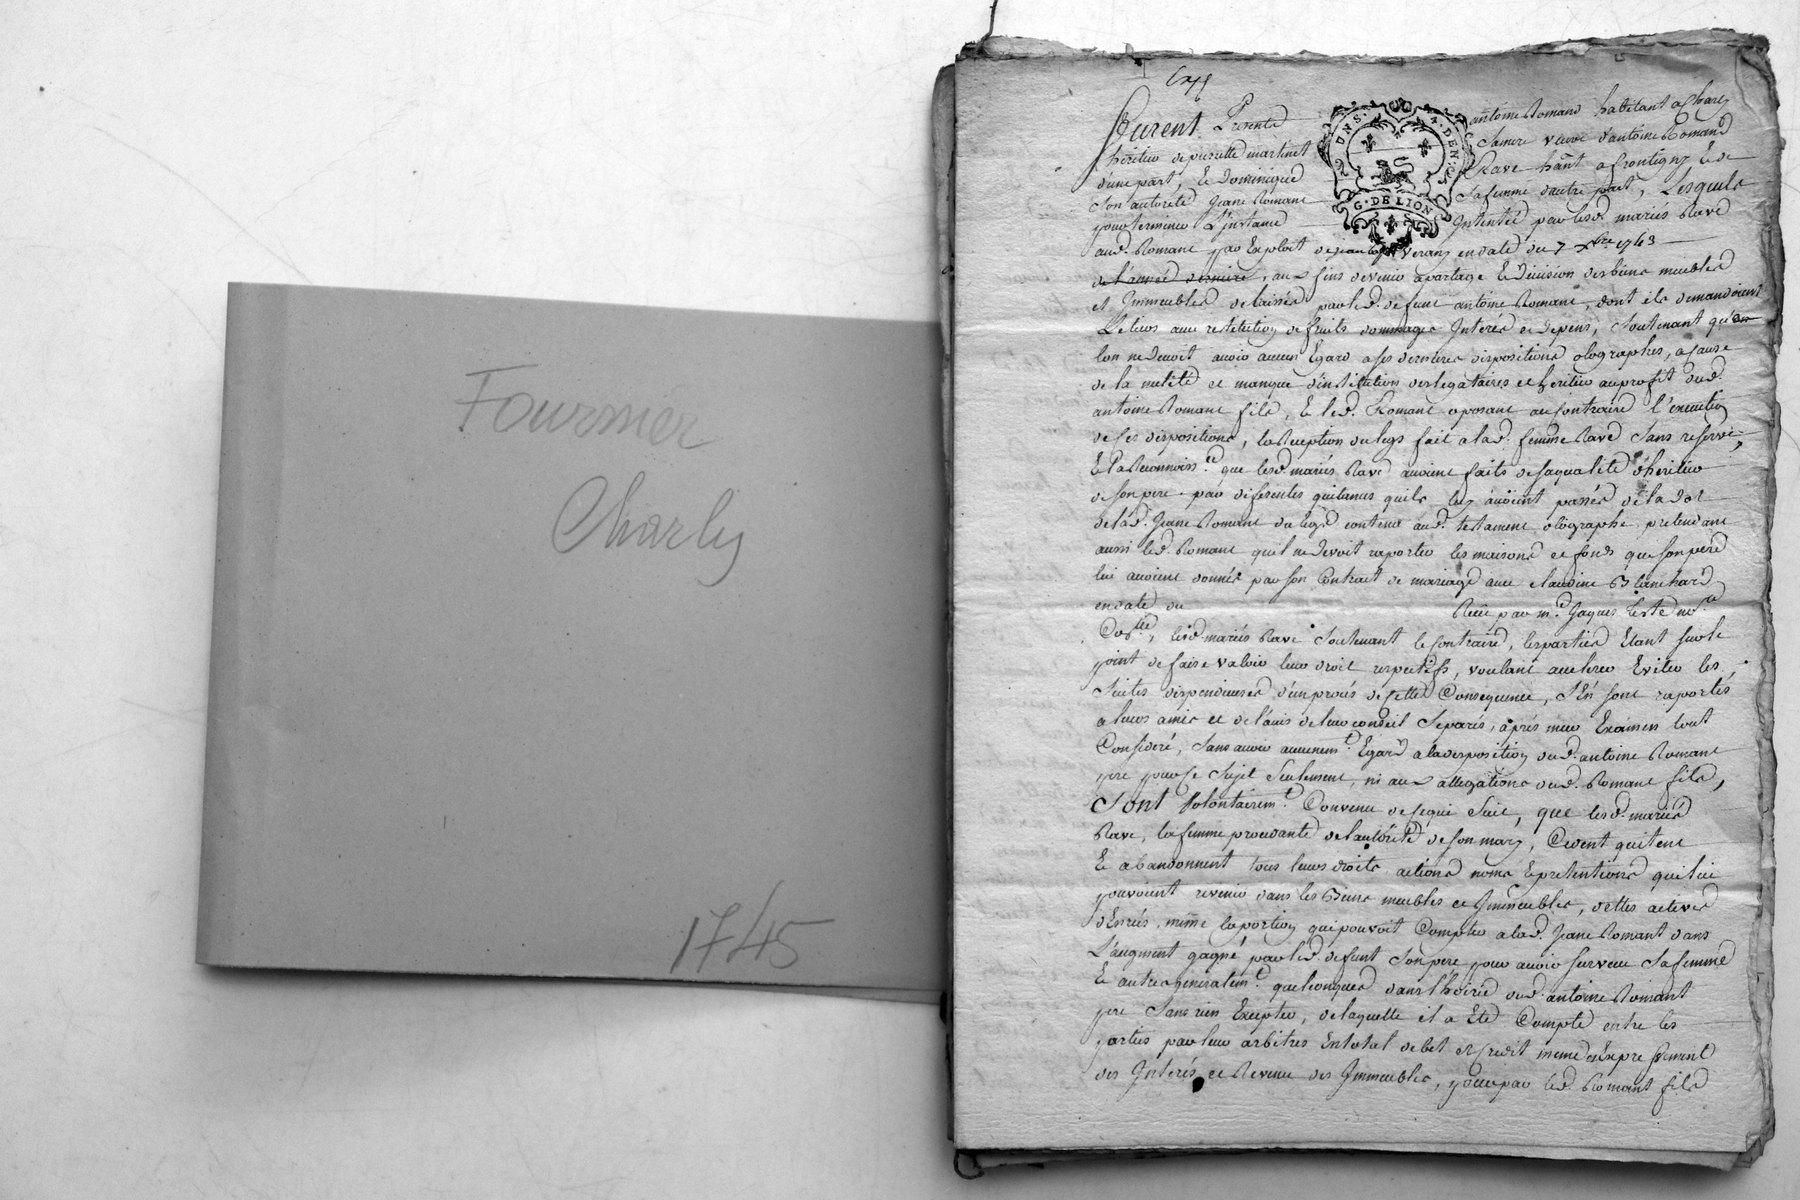 Fournier
Charly
1745
DNS. 4. DEN:
G. DE LION
furent Presents antoine Romand habitant a Charly
heritier de pierrette martinet veuve d'antoine Romand
d'une part, Et Dominique Rave hant a frontigny Et de
son autorité Jeane Romant sa femme d'autre part, Lesquels
pour terminer L'instance Intentée par lesd. mariés Rave
aud. Romant par Exploit de Verany en date du 7 xbre 1743
de l'année derniere, aux fins de venir a partage Et Division des biens meubles
et Immeubles delaissés par led. defunt antoine Romant, dont ils demandoient
Le tiers avec restitution de fruits dommages Interés et depens, soutenant qu'en
lon ne Devoit avoir aucun Egard a ses dernieres dispositions olographes, a cause
de la nulité et manque d'institution des legataires et heritier au profit dud.
antoine Romant fils, Et led. Romant oposant au contraire l'execution
de ses dispositions, la Reception du legs fait a lad. femme Rave sans reserve,
Et la Reconnoiss.ce que lesd. mariés Rave avoient faite de sa qualité d'heritier
de son pere par diferentes quitances quils luy avoient passées de la dot
de lad. Jeane Romant du legs contenu aud. testament olographe, pretendant
aussi led. Romant qu'il ne devoit raporter les maisons et fonds que son pere
lui avoient donnés par son Contrait de mariage avec claudine Blanchard
en date du Receu par m.e Jaques Teste no.re
lesd. mariés Rave soutenant le contraire, les parties Etant sur le
point de faire valoir leur droit respectifs, voulant au lieu Eviter les
suites dispendieuses d'un procés de cette Consequence, s'En sont raportés
a leurs amis et de l'avis de leur conseil separés, aprés meur Examen tout
Consideré, sans avoir aucunem.t Egard a la disposition dud. antoine Romant
pere pour ce sujet seulement, ni aux allegations dud. Romant fils,
Sont Volontairem.t Convenu de ce qui suit, que lesd. mariés
Rave, la femme procedante de l'autorité de son mary, Cedent quitent
Et abandonnent tous leurs droits actions noms Et pretentions qui lui
pouvoient revenir dans les Biens meubles et Immeubles, dettes actives
d'Enrés, même la portion qui pouvoit Compter a lad. Jeane Romant dans
L'augment gagné par led. defunt son pere pour avoir survecu sa femme
Et autres generalem.t quelconques dans l'hoirie dud. antoine Romant
pere sans rien Excepter, de laquelle il a Eté Compté entre les
parties par leur arbitres En total debet et Credit meme
des Interés et Revenu des Immeubles, par led. Romant fils